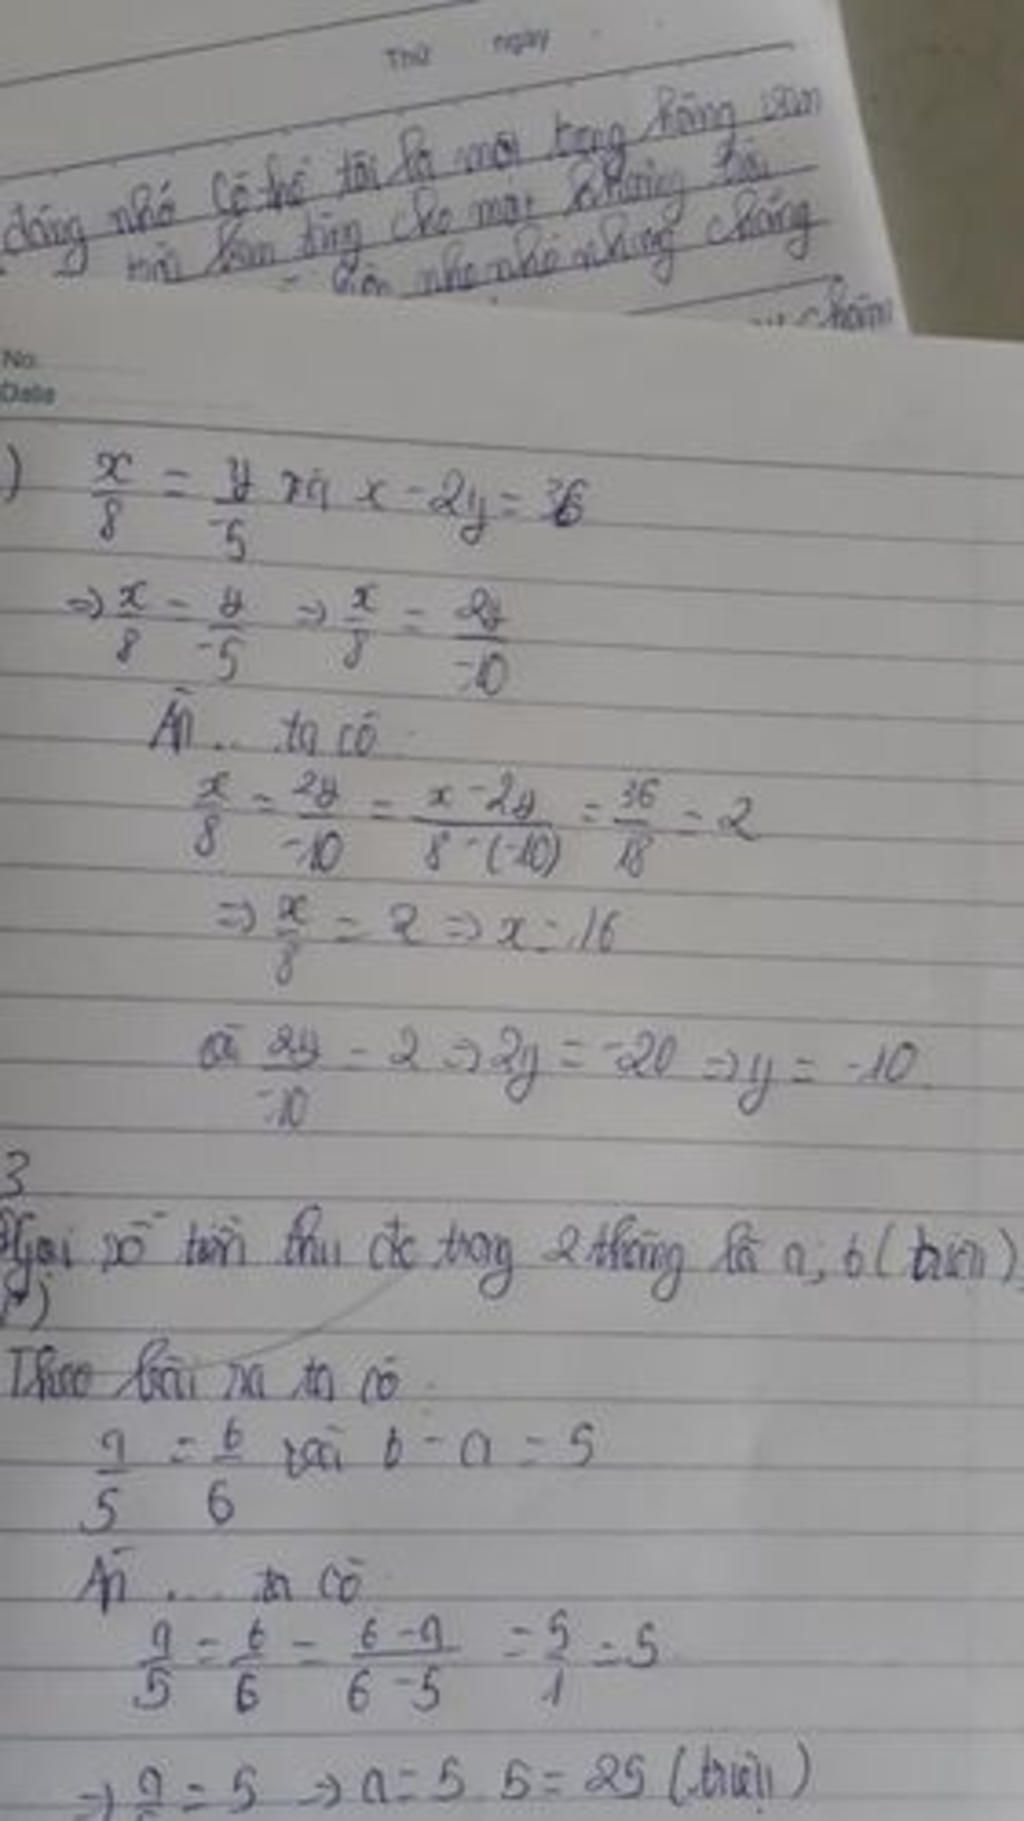 Thứ ngày
đáng nhớ Có thể tôi là một trong
cho một khoảng
nho nhỏ nhưng chẳng
No.
Date
) x/8 = y/-5 và x - 2y = 36
=> x/8 = y/-5 => x/8 = 2y/-10
ÁD ... ta có
x/8 = 2y/-10 = x - 2y/8 - (-10) = 36/18 = 2
=> x/8 = 2 => x = 16
2y/-10 = 2 => 2y = -20 => y = -10
3
Gọi số tiền thu đc trong 2 tháng là a, b (triệu)
Theo bài ra ta có
a/5 = b/6 và b - a = 5
ÁD .... ta có
a/5 = b/6 = b - a/6 - 5 = 5/1 = 5
=> a/5 = 5 => a = 5 . 5 = 25 (triệu)